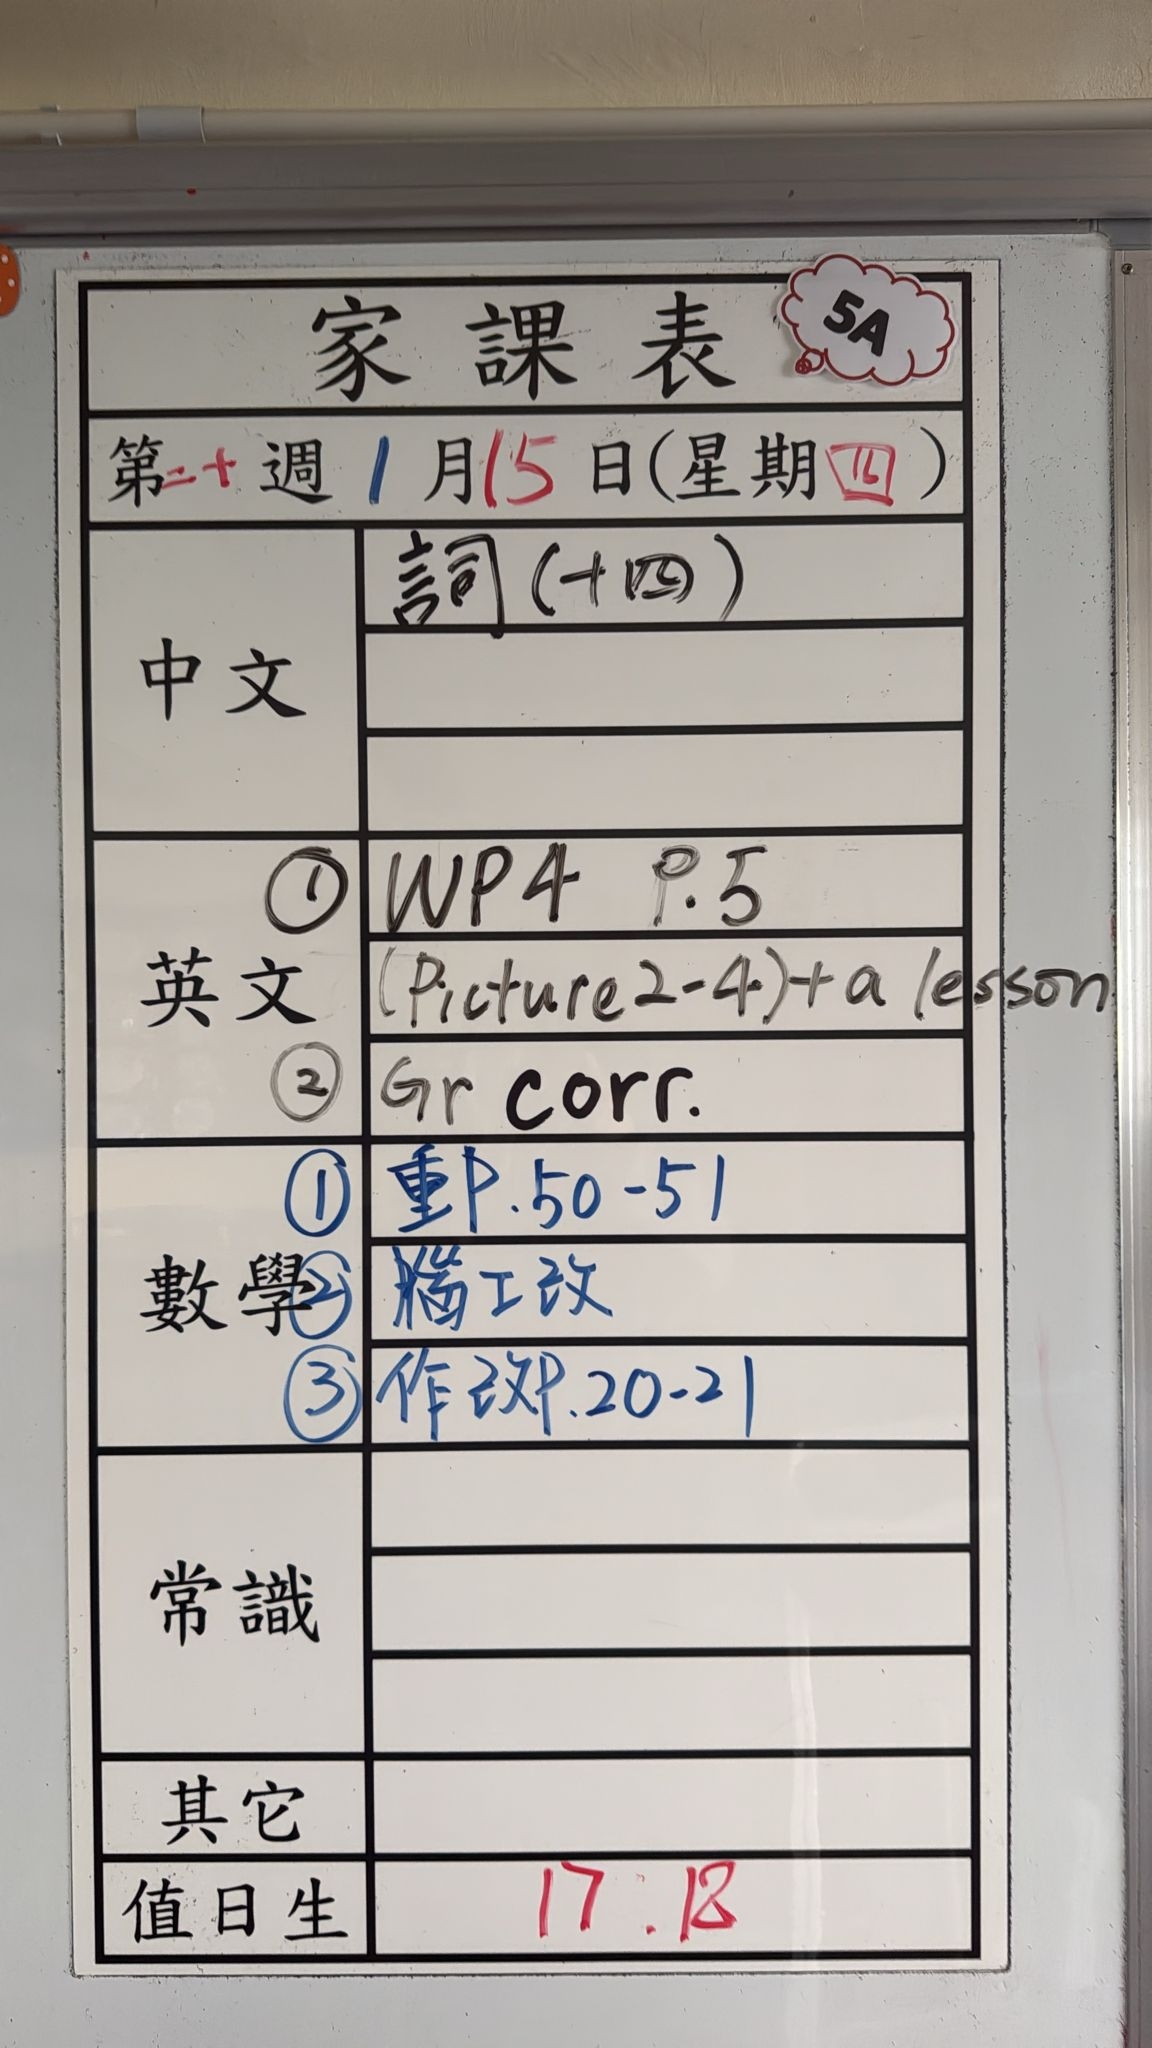 家課表 5A
第二十週 1月15日(星期四)
中文
詞(十四)
英文
① WP4 P.5
(Picture 2-4)+a lesson
② Gr corr.
數學
① 重P.50-51
② 腦工改
③ 作改P.20-21
常識
其它
值日生 17.18